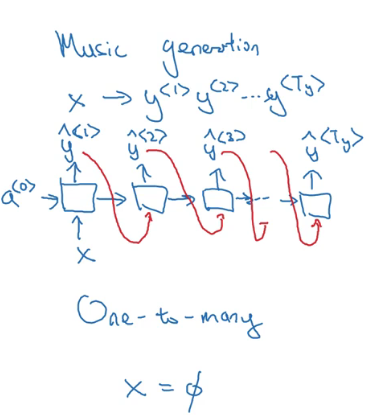 Music generation
x → y<1> y<2> ... y<Ty>
ŷ<1> ŷ<2> ŷ<3> ŷ<Ty>
a<0> → → → ... →
x
One-to-many
x = ϕ